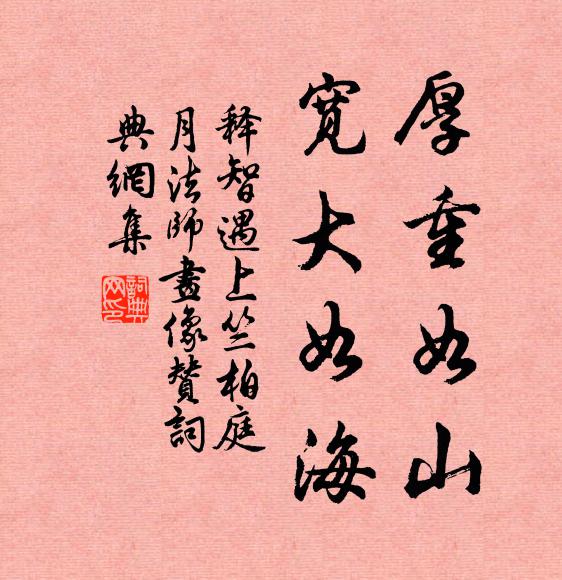 厚重如山
寬大如海
释智遇上竺柏庭
月法师畫像赞詞
典網集
詞典
网印